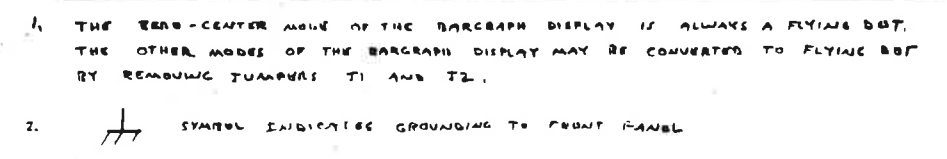 1. THE ZERO-CENTER MODE OF THE BARGRAPH DISPLAY IS ALWAYS A FLYING DOT.
THE OTHER MODES OF THE BARGRAPH DISPLAY MAY BE CONVERTED TO FLYING DOT
BY REMOVING JUMPERS J1 AND J2.
2. SYMBOL INDICATES GROUNDING TO FRONT PANEL